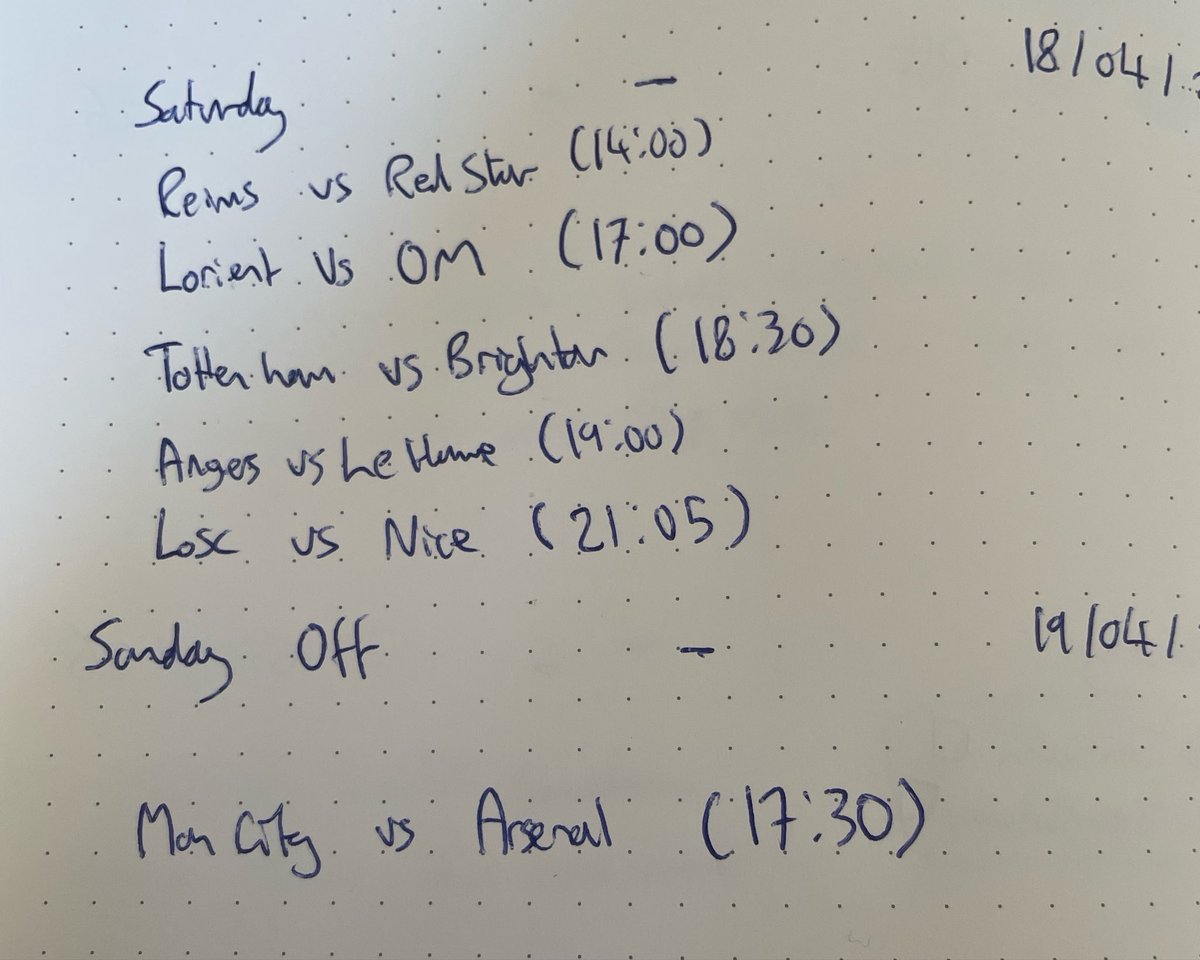 Saturday - 18/04/
Reims vs Red Star (14:00)
Lorient Vs OM (17:00)
Tottenham vs Brighton (18:30)
Anges vs Le Havre (19:00)
Losc vs Nice (21:05)
Sunday Off - 19/04/
Man City vs Arsenal (17:30)